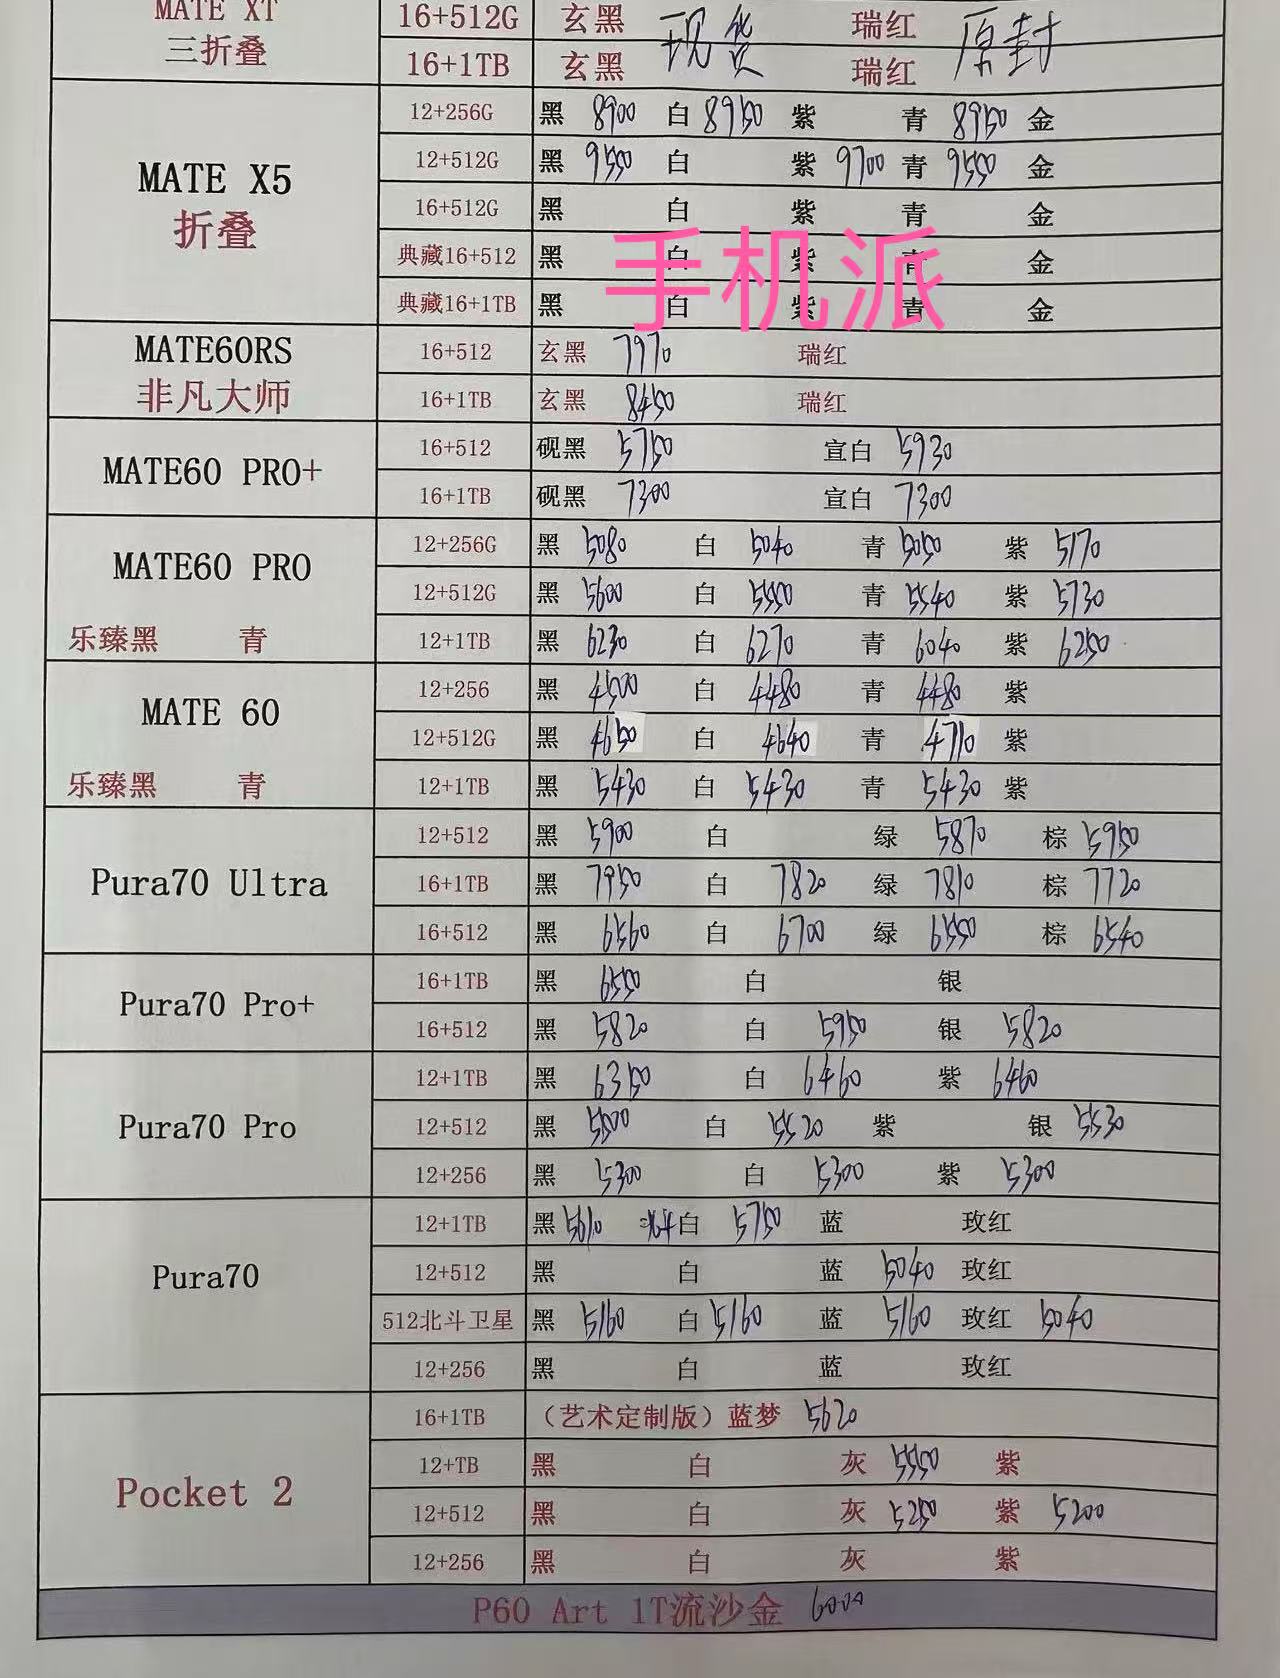 MATE XT 16+512G 玄黑 现货 瑞红 原封
三折叠 16+1TB 玄黑 瑞红
12+256G 黑 8900 白 8950 紫 青 8950 金
MATE X5 12+512G 黑 9550 白 紫 9700 青 9550 金
折叠 16+512G 黑 白 紫 青 金
手机派
典藏16+512 黑 白 紫 青 金
典藏16+1TB 黑 白 紫 青 金
MATE60RS 16+512 玄黑 7970 瑞红
非凡大师 16+1TB 玄黑 8450 瑞红
MATE60 PRO+ 16+512 砚黑 5750 宣白 5930
16+1TB 砚黑 7300 宣白 7300
MATE60 PRO 12+256G 黑 5080 白 5040 青 5050 紫 5170
12+512G 黑 5600 白 5550 青 5540 紫 5730
乐臻黑 青 12+1TB 黑 6230 白 6270 青 6040 紫 6250
MATE 60 12+256 黑 4500 白 4480 青 4480 紫
12+512G 黑 4650 白 4640 青 4710 紫
乐臻黑 青 12+1TB 黑 5430 白 5430 青 5430 紫
12+512 黑 5900 白 绿 5870 棕 5950
Pura70 Ultra 16+1TB 黑 7950 白 7820 绿 7810 棕 7720
16+512 黑 6560 白 6700 绿 6550 棕 6540
Pura70 Pro+ 16+1TB 黑 6550 白 银
16+512 黑 5820 白 5950 银 5820
12+1TB 黑 6350 白 6460 紫 6460
Pura70 Pro 12+512 黑 5500 白 5520 紫 银 5530
12+256 黑 5300 白 5300 紫 5300
12+1TB 黑 5610 白 5750 蓝 玫红
Pura70 12+512 黑 白 蓝 5040 玫红
512北斗卫星 黑 5160 白 5160 蓝 5160 玫红 5040
12+256 黑 白 蓝 玫红
16+1TB （艺术定制版）蓝梦 5620
Pocket 2 12+TB 黑 白 灰 5550 紫
12+512 黑 白 灰 5250 紫 5200
12+256 黑 白 灰 紫
P60 Art 1T流沙金 6000